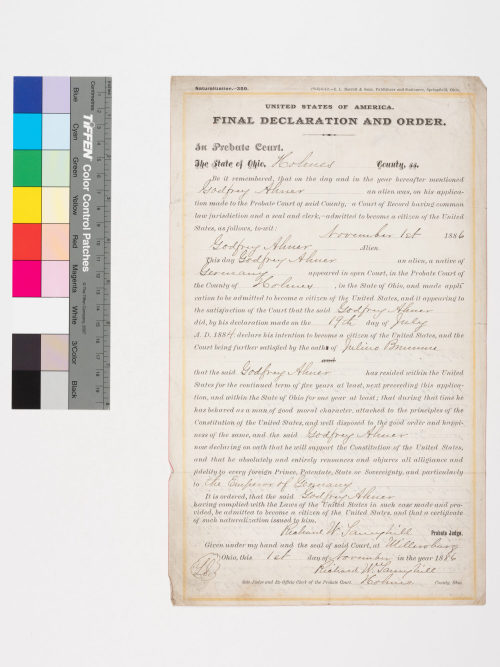 Naturalization.—209.
UNITED STATES OF AMERICA.
FINAL DECLARATION AND ORDER.
In Probate Court.
The State of Ohio, Holmes County, ss.
Be it remembered, that on the day and in the year hereafter mentioned
Godfrey Ahner an alien was, on his applica-
tion made to the Probate Court of said County, a Court of Record having common
law jurisdiction and a seal and clerk,—admitted to become a citizen of the United
States, as follows, to-wit:
November 1st 1886
Godfrey Ahner Alien.
This day Godfrey Ahner an alien, a native of
Germany appeared in open Court, in the Probate Court of
the County of Holmes, in the State of Ohio, and made appli-
cation to be admitted to become a citizen of the United States, and it appearing to
the satisfaction of the Court that the said Godfrey Ahner
did, by his declaration made on the 19th day of July
A. D. 1884, declare his intention to become a citizen of the United States, and the
Court being further satisfied by the oaths of Julius
and
that the said Godfrey Ahner has resided within the United
States for the continued term of five years at least, next preceding this applica-
tion, and within the State of Ohio for one year at least; that during that time he
has behaved as a man of good moral character, attached to the principles of the
Constitution of the United States, and well disposed to the good order and happi-
ness of the same, and the said Godfrey Ahner
now declaring on oath that he will support the Constitution of the United States,
and that he absolutely and entirely renounces and abjures all allegiance and
fidelity to every foreign Prince, Potentate, State or Sovereignty, and particularly
to The Emperor of Germany
It is ordered, that the said Godfrey Ahner
having complied with the Laws of the United States in such case made and pro-
vided, be admitted to become a citizen of the United States, and that a certificate
of such naturalization issued to him.
Richard W. Probate Judge.
Given under my hand and the seal of said Court, at Millersburg
Ohio, this 1st day of November in the year 1886
Richard W.
Sole Judge and Ex-Officio Clerk of the Probate Court. Holmes County, Ohio.
TIFFEN Color Control Patches
Blue
Cyan
Green
Yellow
Red
Magenta
White
3/Color
Black